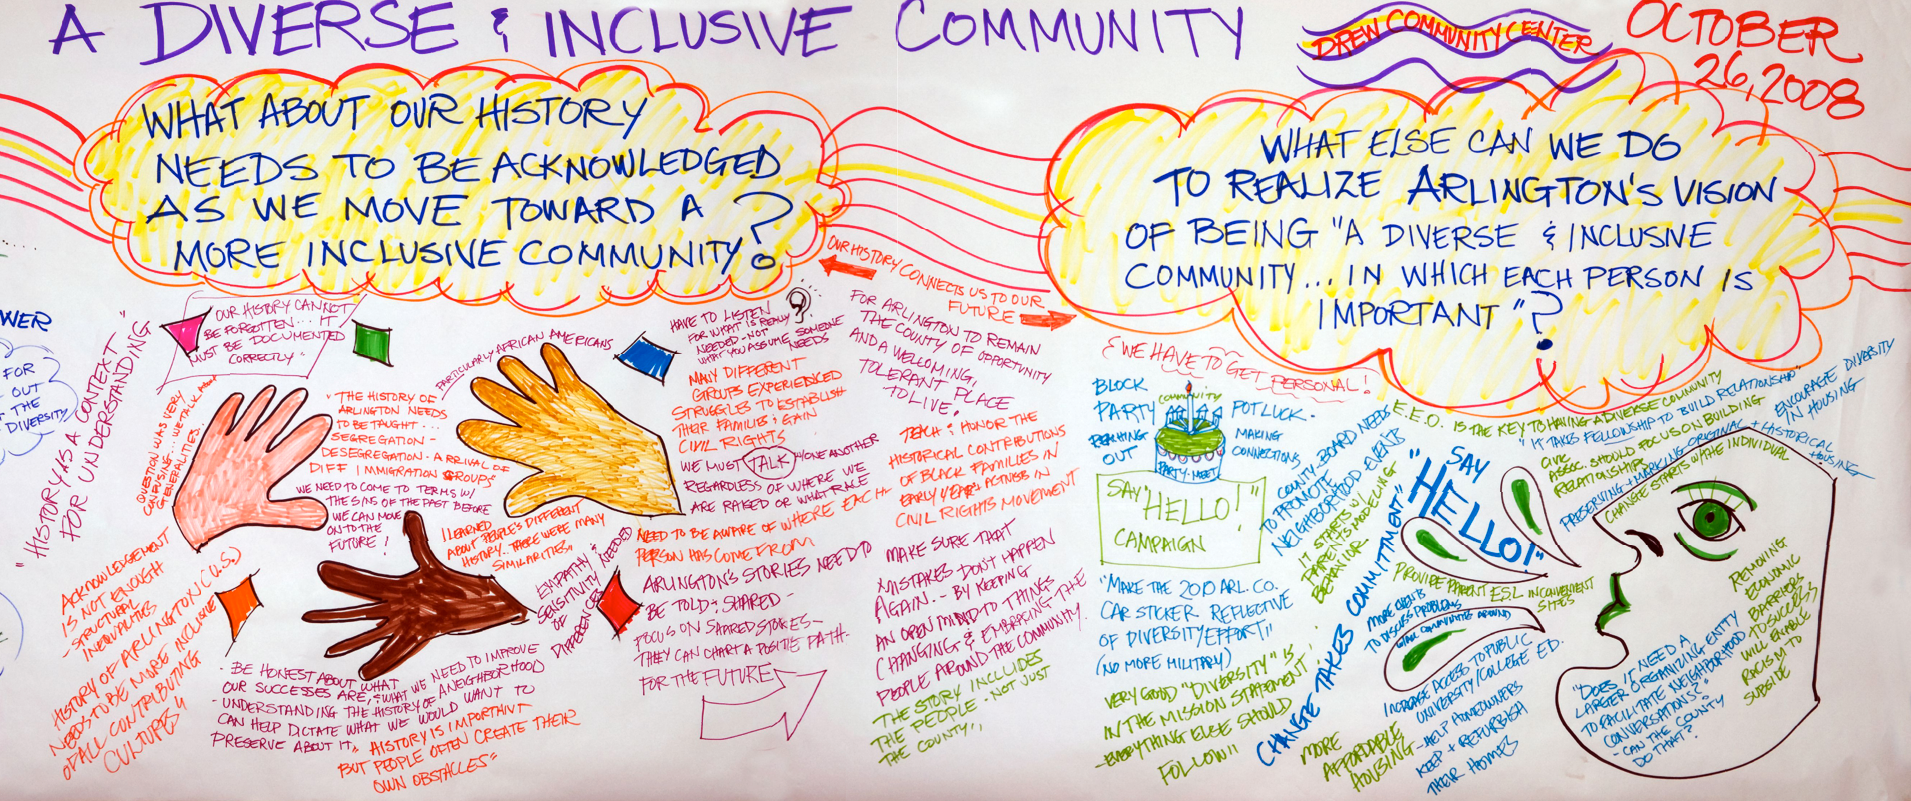 A DIVERSE & INCLUSIVE COMMUNITY
DREW COMMUNITY CENTER
OCTOBER
26, 2008
WHAT ABOUT OUR HISTORY
NEEDS TO BE ACKNOWLEDGED
AS WE MOVE TOWARD A
MORE INCLUSIVE COMMUNITY?
WHAT ELSE CAN WE DO
TO REALIZE ARLINGTON'S VISION
OF BEING "A DIVERSE & INCLUSIVE
COMMUNITY... IN WHICH EACH PERSON IS
IMPORTANT"?
OUR HISTORY CONNECTS US TO OUR
FUTURE
WER
FOR
OUT
THE
DIVERSITY
"HISTORY AS A CONTEXT"
FOR UNDERSTANDING
OUR HISTORY CANNOT
BE FORGOTTEN... IT
MUST BE DOCUMENTED
CORRECTLY"
QUESTION WAS VERY
CONFUSING... WE TALK ABOUT
GENERALITIES...
PARTICULARLY AFRICAN AMERICANS
"THE HISTORY OF
ARLINGTON NEEDS
TO BE TAUGHT...
SEGREGATION -
DESEGREGATION - ARRIVAL OF
DIFF IMMIGRATION GROUPS"
WE NEED TO COME TO TERMS W/
THE SINS OF THE PAST BEFORE
WE CAN MOVE
ON TO THE
FUTURE!
I LEARNED
ABOUT PEOPLE'S DIFFERENT
HISTORY. THERE WERE MANY
SIMILARITIES.
EMPATHY &
SENSITIVITY NEEDED
OF
DIFFERENCES
ACKNOWLEDGEMENT
IS NOT ENOUGH
- STRUCTURAL
INEQUALITIES
HISTORY OF ARLINGTON (U.S.)
NEEDS TO BE MORE INCLUSIVE
OF ALL CONTRIBUTING
CULTURES"
- BE HONEST ABOUT WHAT
OUR SUCCESSES ARE, & WHAT WE NEED TO IMPROVE
- UNDERSTANDING THE HISTORY OF A NEIGHBORHOOD
CAN HELP DICTATE WHAT WE WOULD WANT TO
PRESERVE ABOUT IT"
HISTORY IS IMPORTANT
BUT PEOPLE OFTEN CREATE THEIR
OWN OBSTACLES"
HAVE TO LISTEN
FOR WHAT IS REALLY
NEEDED - NOT
WHAT YOU ASSUME SOMEONE
NEEDS
MANY DIFFERENT
GROUPS EXPERIENCED
STRUGGLES TO ESTABLISH
THEIR FAMILIES & GAIN
CIVIL RIGHTS
WE MUST TALK W/ONE ANOTHER
REGARDLESS OF WHERE WE
ARE RAISED OR WHAT RACE
NEED TO BE AWARE OF WHERE EACH
PERSON HAS COME FROM
ARLINGTON'S STORIES NEED TO
BE TOLD & SHARED -
FOCUS ON SHARED STORIES -
THEY CAN CHART A POSITIVE PATH
FOR THE FUTURE
FOR ARLINGTON TO REMAIN
THE COUNTY OF OPPORTUNITY
AND A WELCOMING,
TOLERANT PLACE
TO LIVE!
TEACH & HONOR THE
HISTORICAL CONTRIBUTIONS
OF BLACK FAMILIES IN
EARLY YEARS
CIVIL RIGHTS MOVEMENT
MAKE SURE THAT
MISTAKES DON'T HAPPEN
AGAIN... BY KEEPING
AN OPEN MIND TO THINGS
CHANGING & EMBRACING THE
PEOPLE AROUND THE COMMUNITY.
THE STORY INCLUDES
THE PEOPLE - NOT JUST
THE COUNTY"
& WE HAVE TO GET PERSONAL!
BLOCK
PARTY
REACHING
OUT
COMMUNITY
PARTY - MEET
POTLUCK -
MAKING
CONNECTIONS
SAY "HELLO!"
CAMPAIGN
"MAKE THE 2010 ARL. CO.
CAR STICKER REFLECTIVE
OF DIVERSITY EFFORT!"
(NO MORE MILITARY)
VERY GOOD "DIVERSITY" IS
IN THE MISSION STATEMENT!
- EVERYTHING ELSE SHOULD
FOLLOW"
COUNTY BOARD NEEDS
TO PROMOTE
NEIGHBORHOOD EVENTS
IT STARTS W/
PARENTS MODELING
BEHAVIOR.
CHANGE TAKES COMMITTMENT"
E.E.O. IS THE KEY TO HAVING A DIVERSE COMMUNITY
"IT TAKES FELLOWSHIP TO BUILD RELATIONSHIP"
ENCOURAGE DIVERSITY
IN HOUSING
CIVIC
ASSOC. SHOULD FOCUS ON BUILDING
RELATIONSHIPS
PRESERVING + MARKING ORIGINAL + HISTORICAL
HOUSING
CHANGE STARTS W/THE INDIVIDUAL
SAY
"HELLO!"
PROVIDE PARENT ESL IN CONVENIENT
SITES
MORE EVENTS
TO DISCUSS PROBLEMS
COMMUNITIES AROUND
INCREASE ACCESS TO PUBLIC
UNIVERSITY/COLLEGE ED.
MORE
AFFORDABLE
HOUSING
- HELP HOMEOWNERS
KEEP + REFURBISH
THEIR HOMES
"DOES IT NEED A
LARGER ORGANIZING ENTITY
TO FACILITATE NEIGHBORHOOD
CONVERSATIONS?"
- CAN THE COUNTY
DO THAT?
REMOVING
ECONOMIC
BARRIERS
TO SUCCESS
WILL ENABLE
RACISM TO
SUBSIDE